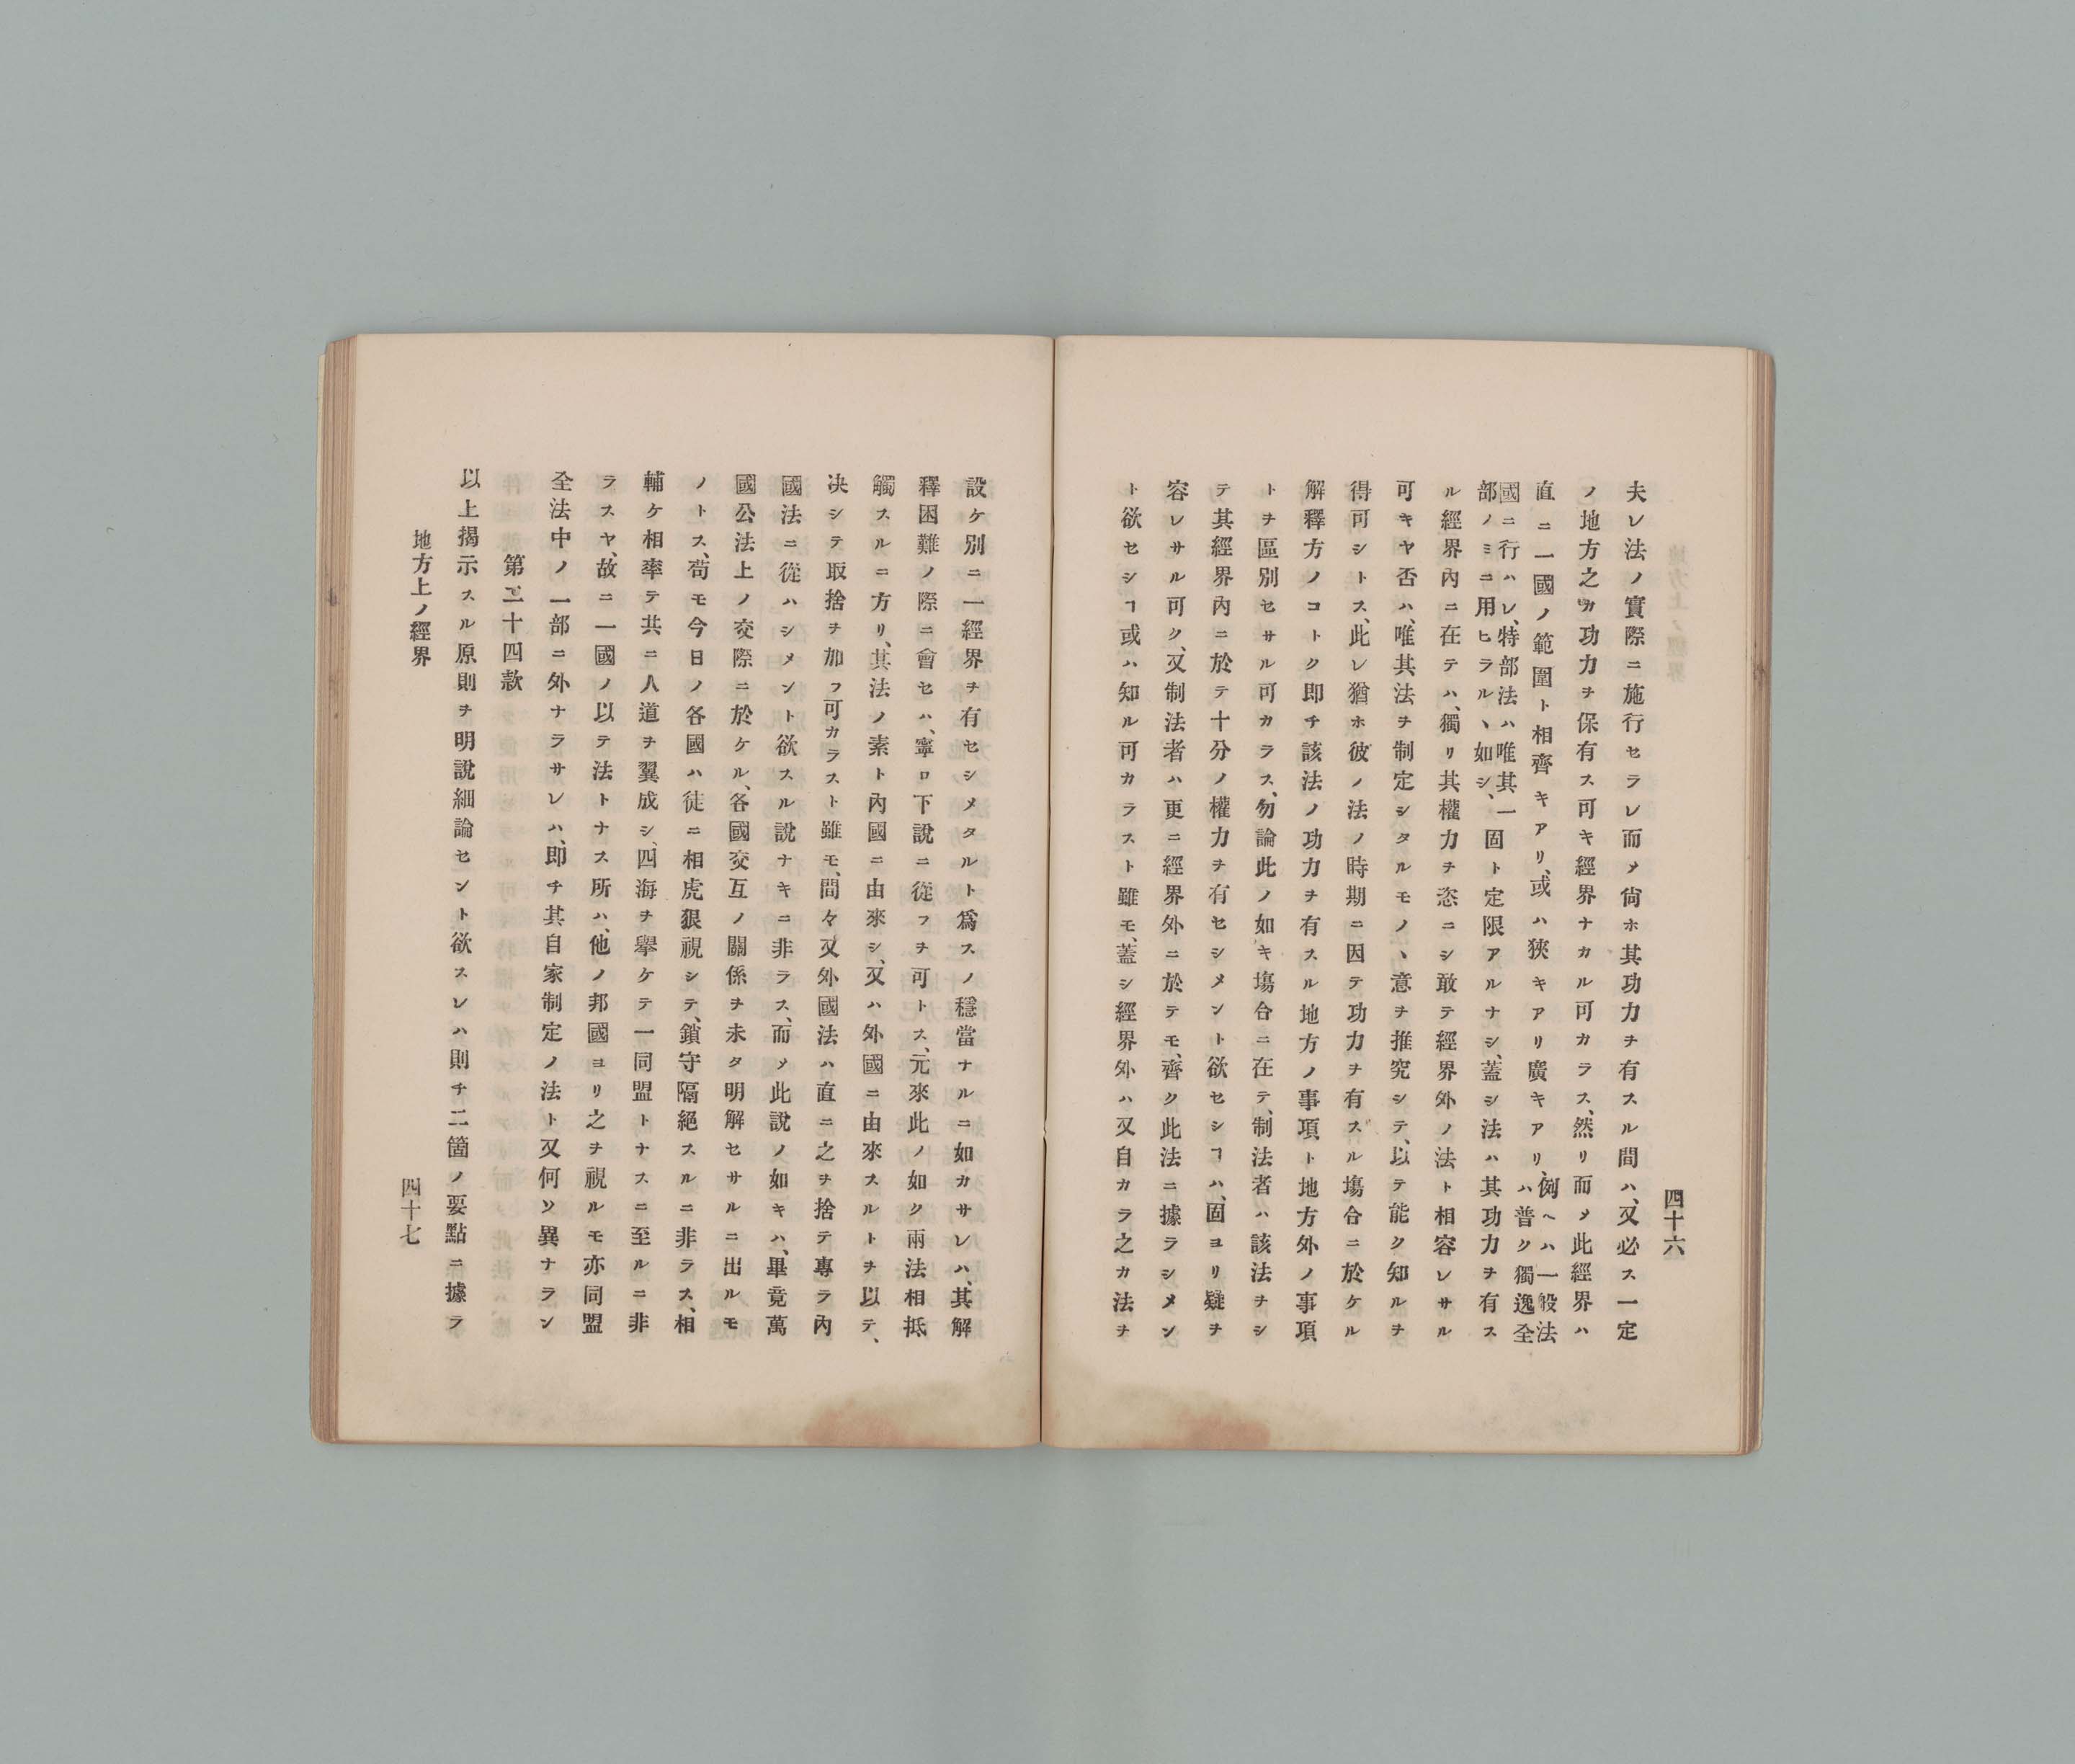 四十六
夫レ法ノ實際ニ施行セラレ而〆尙ホ其功力ヲ有スル間ハ、又必ス一定
ノ地方之カ功力ヲ保有ス可キ經界ナカル可カラス、然リ而〆此經界ハ
直ニ一國ノ範圍ト相齊キアリ、或ハ狹キアリ廣キアリ、例ヘハ一般法
ハ普ク獨逸全
國ニ行ハレ、特部法ハ唯其一
部ノミニ用ヒラルヽ如シ、固ト定限アルナシ、蓋シ法ハ其功力ヲ有ス
ル經界內ニ在テハ、獨リ其權力ヲ恣ニシ敢テ經界外ノ法ト相容レサル
可キヤ否ハ、唯其法ヲ制定シタルモノヽ意ヲ推究シテ、以テ能ク知ルヲ
得可シトス、此レ猶ホ彼ノ法ノ時期ニ因テ功力ヲ有スル塲合ニ於ケル
解釋方ノコトク即チ該法ノ功力ヲ有スル地方ノ事項ト地方外ノ事項
トヲ區別セサル可カラス、勿論此ノ如キ塲合ニ在テ、制法者ハ該法ヲシ
テ其經界內ニ於テ十分ノ權力ヲ有セシメント欲セシヿハ、固ヨリ疑ヲ
容レサル可ク、又制法者ハ更ニ經界外ニ於テモ、齊ク此法ニ據ラシメン
ト欲セシヿ或ハ知ル可カラスト雖モ、蓋シ經界外ハ又自カラ之カ法ヲ
設ケ別ニ一經界ヲ有セシメタルト爲スノ穩當ナルニ如カサレハ、其解
釋困難ノ際ニ會セハ、寧ロ下說ニ從フヲ可トス、元來此ノ如ク兩法相抵
觸スルニ方リ、其法ノ素ト內國ニ由來シ、又ハ外國ニ由來スルトヲ以テ、
决シテ取捨ヲ加フ可カラスト雖モ、間々又外國法ハ直ニ之ヲ捨テ專ラ內
國法ニ從ハシメント欲スル說ナキニ非ラス、而〆此說ノ如キハ、畢竟萬
國公法上ノ交際ニ於ケル、各國交互ノ關係ヲ未タ明解セサルニ出ルモ
ノトス、苟モ今日ノ各國ハ徒ニ相虎狠視シテ、鎖守隔絕スルニ非ラス、相
輔ケ相率テ共ニ人道ヲ翼成シ、四海ヲ擧ケテ一同盟トナスニ至ルニ非
ラスヤ、故ニ一國ノ以テ法トナス所ハ、他ノ邦國ヨリ之ヲ視ルモ亦同盟
全法中ノ一部ニ外ナラサレハ、即チ其自家制定ノ法ト又何ソ異ナラン
第二十四款
以上揭示スル原則ヲ明說細論セント欲スレハ則チ二箇ノ要點ニ據ラ
地方上ノ經界
四十七